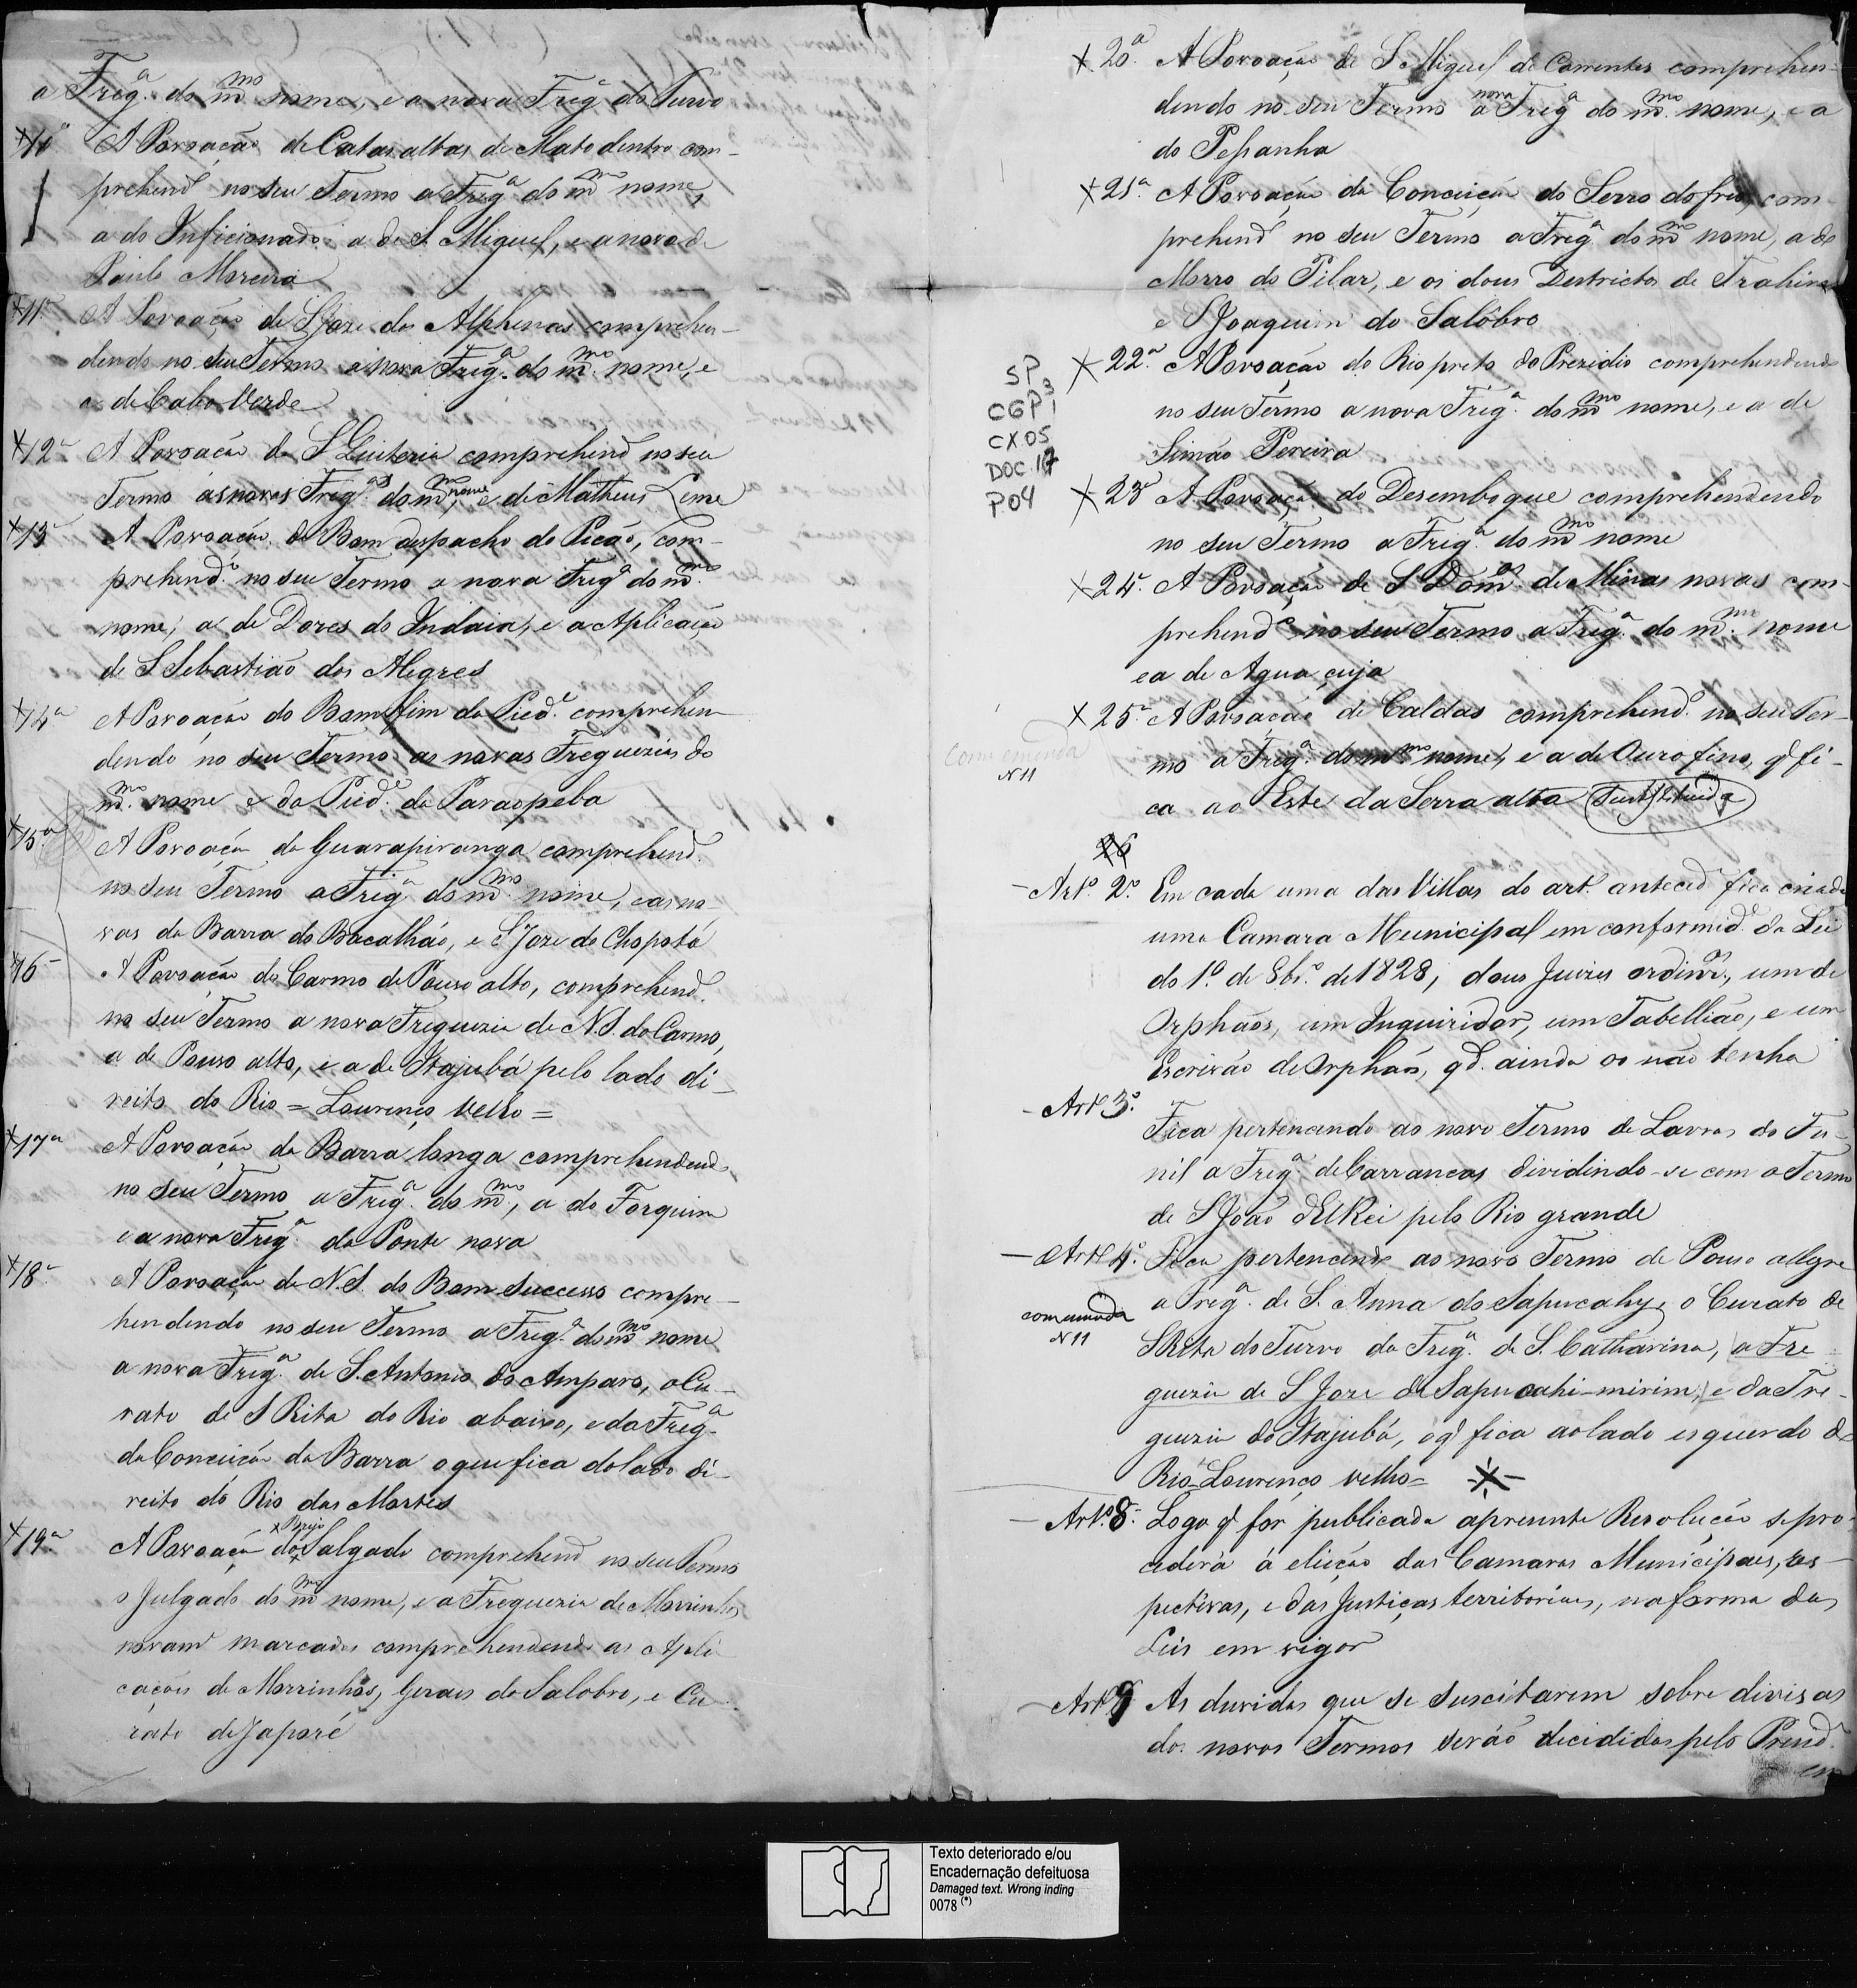 a Freg.ª do m.mo nome, e a nova Freg.ª do Turvo
x 10ª A Povoação de Catas altas de Mato dentro com-
prehend.º no seu Termo a Freg.ª do m.mo nome,
a do Inficionado, a de S. Miguel, e a nova de
Paulo Moreira
x 11ª A Povoação de S Joze dos Alphenas comprehen-
dendo no seu Termo a nova Freg.ª do m.mo nome, e
a de Cabo Verde
x 12ª A Povoação de S Quiteria comprehend.º no seu
Termo as novas Freg.as do m.mo nome, e de Matheus Leme
x 13ª A Povoação do Bom despacho do Picão, com-
prehend.º no seu Termo a nova Freg.ª do m.mo
nome, a de Dores do Indaiá, e a Aplicação
de S Sebastião dos Alegres
x 14ª A Povoação do Bom fim da Pied.e comprehen
dendo no seu Termo as novas Freguezias do
m.mo nome e da Pied.e da Paraopeba
x 15ª A Povoação da Guarapiranga comprehend.
no seu Termo a Freg.ª do m.mo nome, e as no
vas da Barra do Bacalháo, e S Joze do Chopotó
x 16ª A Povoação do Carmo de Pouso alto, comprehend.
no seu Termo a nova Freguezia de N.S. do Carmo,
a de Pouso alto, e a de Itajubá pelo lado di-
reito do Rio = Lourenço Velho =
x 17ª A Povoação da Barra longa comprehendend.º
no seu Termo a Freg.ª do m.mo, a do Forquim
e a nova Freg.ª da Ponte nova
x 18ª A Povoação de N.S. do Bom Successo compre-
hendendo no seu Termo a Freg.ª do m.mo nome
a nova Freg.ª de S. Antonio do Amparo, o Cu-
rato de S Rita do Rio abaixo, e da Freg.ª
da Conceição da Barra o que fica do lado di-
reito do Rio das Mortes
x 19ª A Povoação do x Brejo Salgado comprehend.º no seu Termo
o Julgado do m.mo nome, e a Freguezia de Morrinhos
novam.e marcada comprehendendo as Apli
cações de Morrinhos, Gerais do Salobro, e Cu
rato de Japoré
x 20ª A Povoação de S Miguel de Correntes comprehen-
dendo no seu Termo a nova Freg.ª do m.mo nome, e a
do Peçanha
x 21ª A Povoação da Conceição do Serro do frio, com-
prehend.º no seu Termo a Freg.ª do m.mo nome, a do
Morro do Pilar, e os dous Destrictos de Trahiras
e S Joaquim do Salôbro
SP
CGP1
CX.05
DOC.17
P04
x 22ª A Povoação do Rio preto do Prezidio comprehendendo
no seu Termo a nova Freg.ª do m.mo nome, e a de
Simão Pereira
x 23ª A Povoação do Desemboque comprehendendo
no seu Termo a Freg.ª do m.mo nome
x 24ª A Povoação de S Dom.os de Minas novas com-
prehend.º no seu Termo a Freg.ª do m.mo nome
e a de Agua çuja
com emenda
N 11
x 25ª A Povoação de Caldas comprehend.º no seu Ter-
mo a Freg.ª do m.mo nome, e a de Ouro fino, q̃ fi-
ca ao Este da Serra alta (Substituida)
26
- Art.º 2.º Em cada uma das Villas do art.º anteced.e fica criada
uma Camara Municipal em conformid.e da Lei
do 1.º de 8br.º de 1828, dous Juizes ordin.os, um de
Orphãos, um Inquiridor, um Tabellião, e um
Escrivão de Orphãos, q.do ainda os não tenha
- Art.º 3.º
Fica pertencendo ao novo Termo de Lavras do Fu-
nil a Freg.ª de Carrancas dividindo-se com o Termo
de S João d'ElRei pelo Rio grande
- Art.º 4.º Fica pertencendo ao novo Termo de Pouso allegre
a Freg.ª de S. Anna do Sapucahy, o Curato de
com emenda
N 11
S Rita do Turvo da Freg.ª de S. Catharina, a Fre
guezia de S Joze do Sapucahi-mirim, e da Fre-
guezia do Itajubá, o q̃ fica ao lado esquerdo do
Rio = Lourenço velho =
- Art.º 8.º Logo q̃ for publicada a prezente Resolução se pro-
cederá á eleição das Camaras Municipaes, res-
pectivas, e das Justiças territoriaes, na forma das
Leis em vigor
- Art.º 9 As duvidas que se suscitarem sobre divisas
dos novos Termos serão decididas pelo Prezid.e
em
Texto deteriorado e/ou
Encadernação defeituosa
Damaged text. Wrong inding
0078 (*)